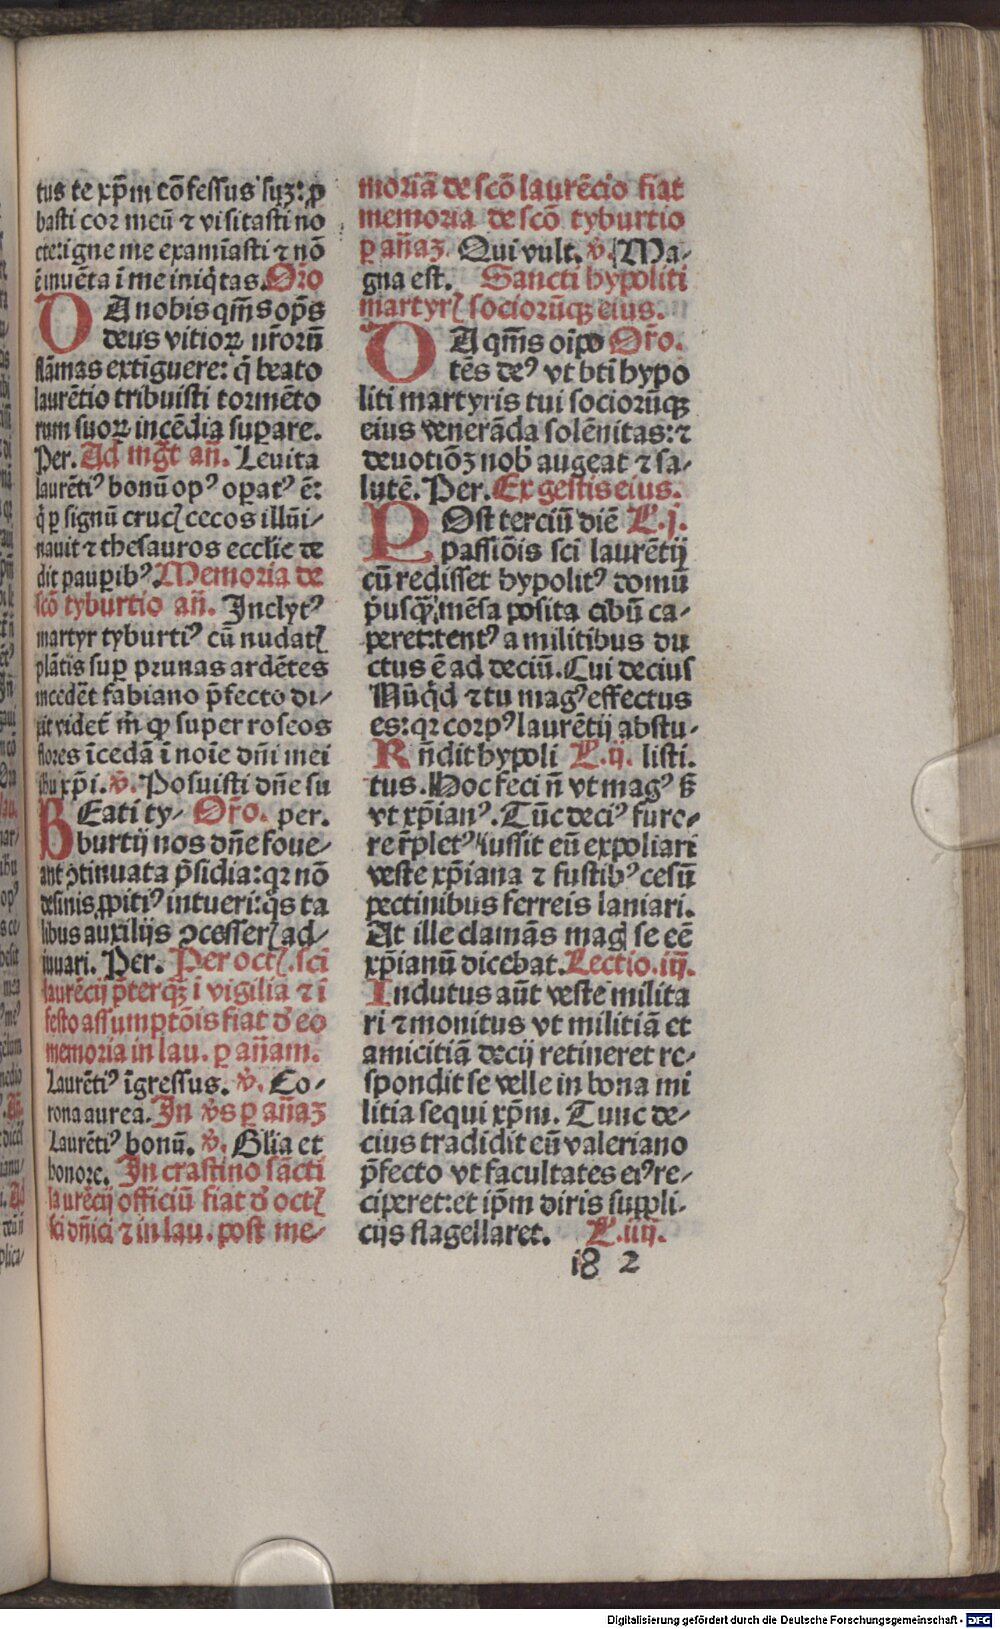 tus te xp̄m cōfessus suʒ: ꝓ
basti cor meū ⁊ visitasti no
cte: igne me examīasti ⁊ nō
ē inuēta ī me iniq̄tas. Oŕo
DA nobis qm̄s op̄s
deus vitioꝝ nr̄orū
flāmas extīguere: q̄ beato
laurētio tribuisti tormēto
rum suoꝝ incēdia suꝑare.
Per. Ad mḡt an̄. Leuita
laurētiꝰ bonū opꝰ oꝑatꝰ ē:
q̄ ꝑ signū crucꝭ cecos illūi-
nauit ⁊ thesauros ecclie de
dit pauꝑibꝰ. Memoria de
scō tyburtio an̄. Inclytꝰ
martyr tyburtiꝰ cū nudatꝭ
plātis suꝑ prunas ardētes
incedēt fabiano p̄fecto di-
xit videt̄ m̄ ꝙ super roseos
flores īcedā ī noīe dn̄i mei
ihu xp̄i. v̄. Posuisti dn̄e su
BEati ty- Oŕo. per.
burtij nos dn̄e foue-
ant ꝯtinuata p̄sidia: qꝛ nō
desinis ꝓpitiꝰ intueri: q̄s ta
libus auxilijs ꝯcesserꝭ ad-
iuuari. Per. Per octꝭ. sci
laurēcij p̄terqʒ̄ ī vigilia ⁊ ī
festo assumptōis fiat d̄ eo
memoria in lau. ꝑ an̄am.
Laurētiꝰ īgressus. v̄. Co-
rona aurea. In v̄s ꝑ an̄aʒ
Laurētiꝰ bonū. v̄. Glīa et
honore. In crastino sācti
laurēcij officiū fiat d̄ octꝭ
sci dn̄ici ⁊ in lau. post me-
moriā de scō laurēcio fiat
memoria de scō tyburtio
ꝑ an̄aʒ. Qui vult. v̄. Ma-
gna est. Sancti hypoliti
martyrꝭ sociorūqꝫ eius.
DA qm̄s oīpo Oŕo.
tēs deꝰ vt bti hypo
liti martyris tui sociorūqꝫ
eius venerāda solēnitas: ⁊
deuotiōʒ nob̄ augeat ⁊ sa-
lutē. Per. Ex gestis eius.
POst terciū diē L. j.
passiōis sci laurētij
cū redisset hypolitꝰ domū
p̄usqʒ̄ mēsa posita cibū ca-
peret: tentꝰ a militibus du
ctus ē ad deciū. Cui decius
Nūqd̄ ⁊ tu magꝰ effectus
es: qꝛ corpꝰ laurētij abstu-
Rn̄dit hypoli L. ij. listi.
tus. Hoc feci n̄ vt magꝰ sꝫ
vt xp̄ianꝰ. Tūc deciꝰ furo-
re r̄pletꝰ iussit eū expoliari
veste xp̄iana ⁊ fustibꝰ cesū
pectinibus ferreis laniari.
At ille clamās magꝭ se eē
xp̄ianū dicebat. Lectio. iij.
Indutus aūt veste milita
ri ⁊ monitus vt militiā et
amicitiā decij retineret re-
spondit se velle in bona mi
litia sequi xp̄m. Tunc de-
cius tradidit eū valeriano
p̄fecto vt facultates eiꝰ re-
ciperet: et ip̄m diris suppli-
cijs flagellaret. L. iiij.
182
Digitalisierung gefördert durch die Deutsche Forschungsgemeinschaft - DFG